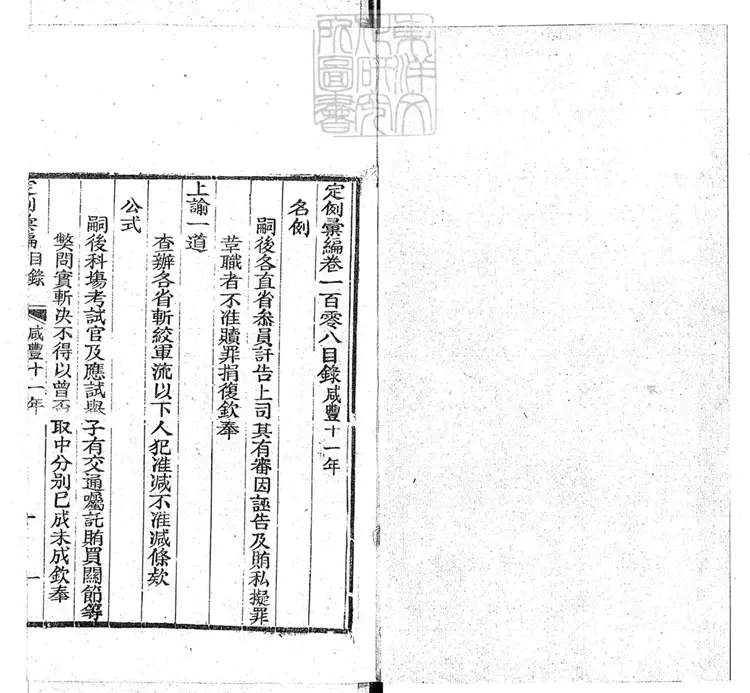 東洋文
化研究
所圖書
定例彙編卷一百零八目錄咸豐十一年
名例
嗣後各直省叅員訐告上司其有審因誣告及賄私擬罪
革職者不准贖罪捐復欽奉
上諭一道
查辦各省斬絞軍流以下人犯准減不准減條欵
公式
嗣後科塲考試官及應試舉子有交通囑託賄買關節等
獘問實斬决不得以曾否取中分別已成未成欽奉
定例彙編目錄 咸豐十一年